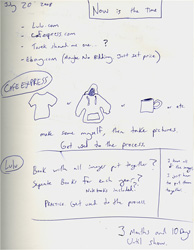 July 20 2008
Now is the Time
- Lulu.com
- Cafexpress.com
- Tarek showed me one... ?
- Ebay.com (Maybe No Bidding Just set price)
CAFE EXPRESS
or or or etc.
make some myself, then take pictures.
Get used to the process
Lulu
Book with all images put together?
Separate Books for each year?
Notebooks included?
Practice. Get used to the process
3 Months and 10 Days
Until show